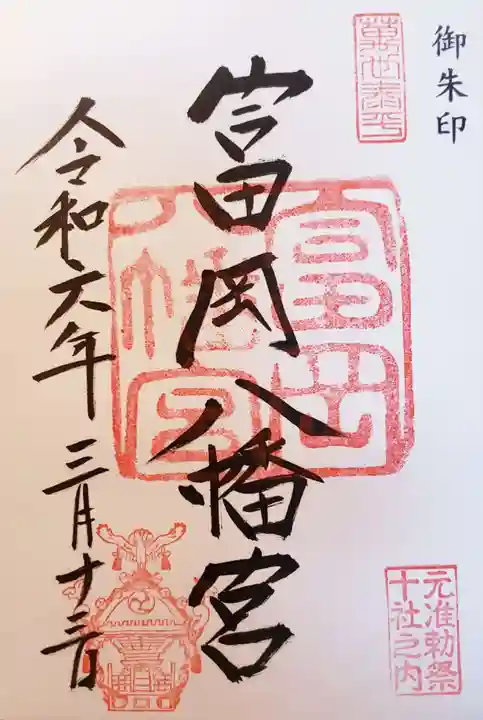 御朱印
萬世泰平
富岡八幡宮
富岡八幡宮
令和六年三月十三日
元准勅祭
十社之内